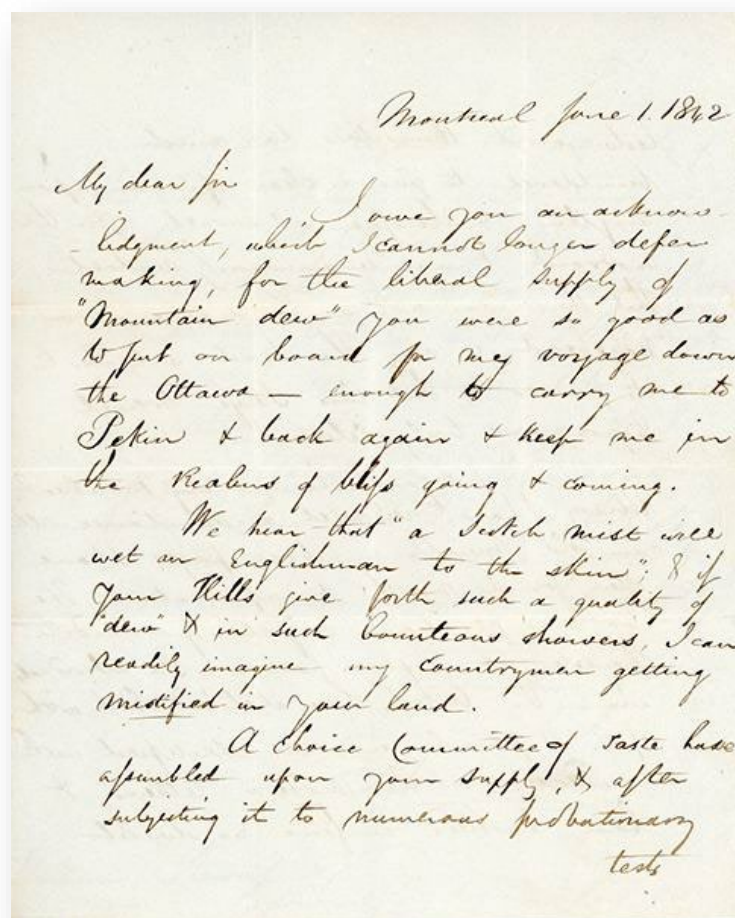 Montreal June 1. 1842
My dear Sir
I owe you an acknow-
-ledgment, which I cannot longer defer
making, for the liberal supply of
"Mountain dew" you were so good as
to put on board for my voyage down
the Ottawa — enough to carry me to
Pekin & back again & keep me in
the Realms of bliss going & coming.
We hear that "a Scotch mist will
wet an Englishman to the skin"; & if
your Hills give forth such a quality of
"dew" & in such bounteous showers, I can
readily imagine my countrymen getting
mistified in your land.
A choice Committee of Taste have
assembled upon your supply, & after
subjecting it to numerous probationary
tests